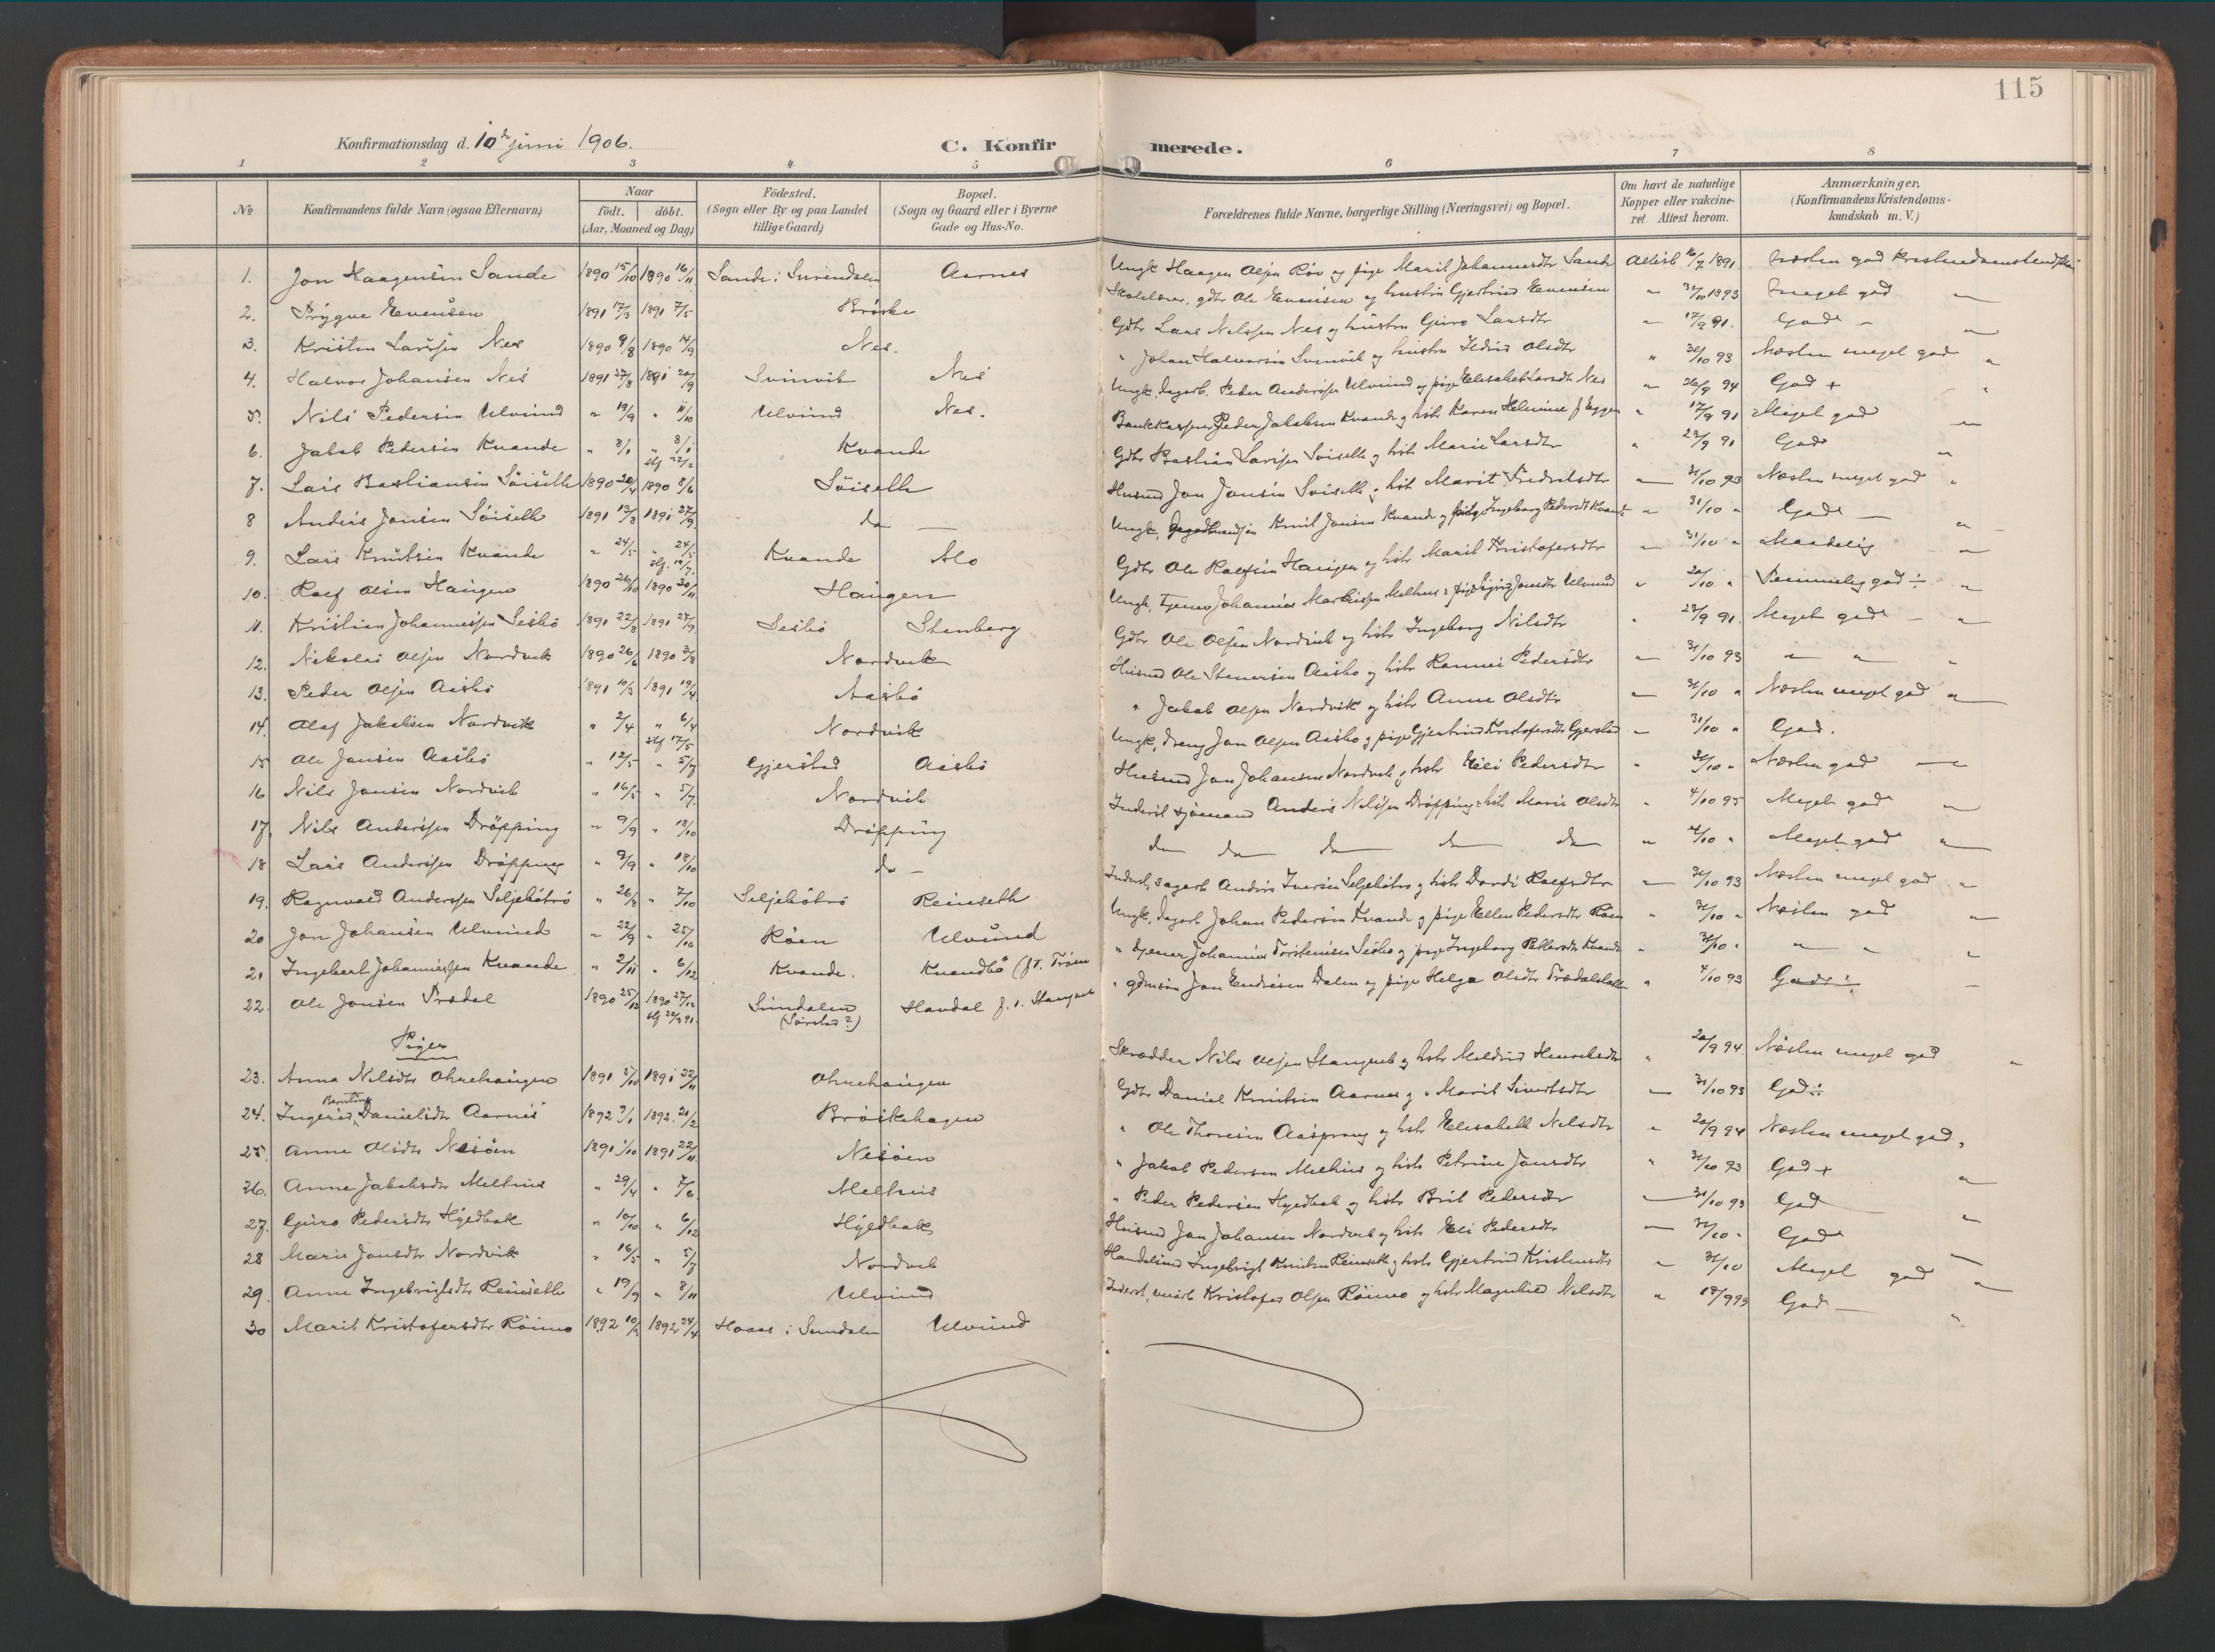 115
Konfirmationsdag d. 10de juni 1906.
C. Konfirmerede.
1 2 3 4 5 6 7 8
No
Konfirmandens fulde Navn (ogsaa Efternavn)
Naar
födt. döbt.
(Aar, Maaned og Dag)
Födested.
(Sogn eller By og paa Landet
tillige Gaard)
Bopæl.
(Sogn og Gaard eller i Byerne
Gade og Hus-No.
Forældrenes fulde Navne, borgerlige Stilling (Næringsvei) og Bopæl.
Om havt de naturlige
Kopper eller vakcine-
ret. Attest herom.
Anmærkninger.
(Konfirmandens Kristendoms-
kundskab m. V.)
1. Jon Haagensen Sande 1890 15/10 1890 16/11 Sande i Surendalen Aarnes Ungk. Haagen Olsen Röv og pige Marit Johannesdtr Sande Attest 16/7 1891 Næsten god Kristendomskundskab
2. Trygve Evensen 1891 17/3 1891 7/5 Bröske Skolelærer, gdbr Ole Evensen og hustru Gjertrud Evensen " 31/10 1893 Meget god "
3. Kristen Larssen Nes 1890 9/8 1890 14/9 Nes. Gdbr Lars Nilssen Nes og hustru Guro Larsdtr " 17/9 91. Gods "
4. Halvor Johansen Nes 1891 27/8 1891 20/9 Svinvik Nes " Johan Halvorsen Svinvik og hustru Ildrid Olsdtr " 31/10 93 Næsten meget god "
5. Nils Pedersen Ulvund " 19/9 " 11/10 Ulvund Nes. Ungk. dagarb. Peder Anderssen Ulvund og pige Elisabet Larsdtr Nes " 26/9 94 God + "
6. Jakob Pedersen Kvande " 8/1 " 8/1 Kvande Bankkasserer Peder Jakobsen Kvande og hstr Karen Helmine f. Eggen " 17/9 91 Meget god "
stf 22/2
7. Lars Bastiansen Söiseth 1890 20/4 1890 8/6 Söiseth Gdbr Bastian Larssen Söiseth og hstr Marie Larsdtr " 28/9 91 God "
8 Anders Jonsen Söiseth 1891 13/8 1891 27/9 do — Husmd Jon Jonsen Söiseth og hstr Marit Fredriksdtr — 31/10 93 Næsten meget god "
9. Lars Knutsen Kvande " 24/5 " 24/5 Kvande Mo Ungk. Knut Jonsen Kvande og pige Ingeborg Pedersdtr Kvande " 31/10 " God — "
stf. 19/7.
10. Roef Olsen Haugen 1890 26/10 1890 30/11 Haugen Gdbr Ole Roefsen Haugen og hstr Marit Kristofersdtr — 31/10 " Maadelig "
11. Kristian Johannessen Sesbö 1891 22/8 1891 27/9 Sesbö Stenberg Ungk. tjener Johannes Melhus & pige Sigrid Jonsdtr Ulvund " 20/10 " Temmelig god ÷ "
12. Nikolai Olsen Nordvik 1890 26/6 1890 3/8 Nordvik Gdbr Ole Olsen Nordvik og hstr Ingeborg Nilsdtr " 28/9 91. Meget god — "
13. Peder Olsen Aasbö 1891 10/3 1891 19/4 Aasbö Husmd Ole Stenersen Aasbö og hstr Rannei Pedersdtr — 31/10 93 " " "
14. Olaf Jakobsen Nordvik " 2/4 " 6/4 Nordvik " Jakob Olsen Nordvik og hstr Anne Olsdtr — 31/10 " Næsten meget god "
stf 17/5
15 Ole Jonsen Aasbö " 12/5 " 5/7 Gjerstad Aasbö Ungk. dreng Jon Olsen Aasbö og pige Gjertrud Kristofersdtr Gjerstad — 31/10 " God.
16 Nils Jonsen Nordvik " 16/5 " 5/7. Nordvik Husmd Jon Johansen Nordvik og hstr Eli Pedersdtr " 31/10 " Næsten god —
17. Nils Anderssen Dröpping " 9/9 " 18/10 Dröpping Inderst sjömand Anders Nilssen Dröpping & hstr Marie Olsdtr " 4/10 95 Meget god "
18 Lars Anderssen Dröpping " 9/9 " 18/10 do — do do do do do " 4/10 " Meget god "
19. Ragnvald Anderssen Seljebötrö " 26/8 " 7/10 Seljebötrö Reinseth Inderst, sagarb Anders Iversen Seljebötrö og hstr Dordi Roefsdtr — 31/10 93 Næsten meget god "
20 Jon Johansen Ulvund " 22/9 " 25/10 Röen Ulvund Ungk. dagarb Johan Pedersen Kvande og pige Ellen Pedersdtr Röen " 31/10 " Næsten god "
21. Ingebert Johannessen Kvande " 2/11 " 6/12 Kvande. Kvandbö (f.t. Tröen " tjener Johannes Torstensen Sesbö og pige Ingeborg Pettersdtr Kvande " 31/10 " " " "
22. Ole Jonsen Trædal 1890 25/12 1890 27/12 Sundalen Havdal f. t. Stangvik " gdmsön Jon Endresen Dalen og pige Helga Olsdtr " 4/10 93 Gods ÷ —
stf 22/3 91.
(Sörstad?)
Piger
23. Anna Nilsdtr Ohrehaugen 1891 5/10 1891 22/11 Ohrehaugen Skrædder Nils Olsen Stangvik og hstr Meldrid Henriksdtr " 20/9 94 Næsten meget god "
Berntine
24. Ingerid Danielsdtr Aarnes 1892 9/1 1892 21/2 Bröskehagen Gdbr Daniel Knutsen Aarnes og " Marit Sivertsdtr — 31/10 93 God ÷
25. Anne Olsdtr Nesöien 1891 1/10 1891 22/11. Nesöien " Ole Thoresen Aasprong og hstr Elisabeth Nilsdtr " 20/9 94 Næsten meget god "
26. Anne Jakobsdtr Melhus " 29/4 " 7/6 Melhus " Jakob Pedersen Melhus og hstr Petrine Jonsdtr " 31/10 93 God + "
27. Guro Pedersdtr Hyedbak " 10/10 " 6/12 Hyedbak " Peder Pedersen Hyedbak og hstr Brit Pedersdtr — 31/10 93 God — "
28 Marie Jonsdtr Nordvik " 16/5 " 5/7 Nordvik Husmd Jon Johansen Nordvik og hstr Eli Pedersdtr — 31/10 " God —
29. Anne Ingebrigtsdtr Reinseth " 19/9 " 8/11 Ulvund Handelsmd Ingebrigt Knutsen Reinseth og hstr Gjertrud Kristensdtr " 31/10 Meget god "
30 Marit Kristofersdtr Röimo 1892 10/3 1892 24/4 Hoaas i Sundalen Ulvund Inderst, Kristofer Olsen Röimo og hstr Magnhild Nilsdtr " 18/9 93 God — "